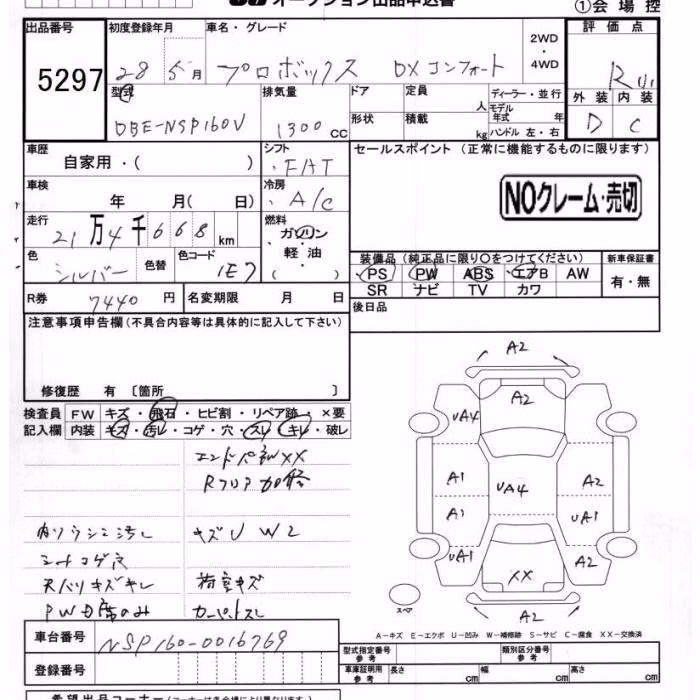 オークション出品申込書
①会場控
出品番号
5297
初度登録年月
28 5月
車名・グレード
プロボックス DXコンフォート
2WD・4WD
評価点
R
外装 内装
D C
型式
DBE-NSP160V
排気量
1300cc
ドア
形状
定員 人
積載 kg
ディーラー・並行
モデル年式 年
ハンドル 左・右
車歴
自家用・( )
シフト
FAT
セールスポイント(正常に機能するものに限ります)
NOクレーム・売切
車検
年 月( 日)
冷房
A/C
走行
21万4千668km
燃料
ガソリン・軽油・( )
色
シルバー
色替
色コード
1E7
装備品(純正品に限り○をつけてください)
PS PW ABS エアB AW
SR ナビ TV カワ
新車保証書
有・無
R券 7440円
名変期限 月 日
後日品
注意事項申告欄(不具合内容等は具体的に記入して下さい)
修復歴 有〔箇所 〕
検査員記入欄
FW キズ・飛石・ヒビ割・リペア跡・×要
内装 キズ・汚レ・コゲ・穴・スレ・キレ・破レ
エンドパネXX
Rフロア
内ソウシミ汚レ キズUW2
シートコゲ穴
天バリキズキレ キズ
PW のみ カーペットスレ
A2
A2
UA4
A1
A1
UA1
UA4
A2
UA1
A2
XX
A2
スペア
A-キズ E-エクボ U-凹み W-補修跡 S-サビ C-腐食 XX-交換済
車台番号
NSP160-0016769
登録番号
型式指定番号 参考
類別区分番号 参考
車庫証明用 参考
長さ cm
幅 cm
高さ cm
希望出品コーナー